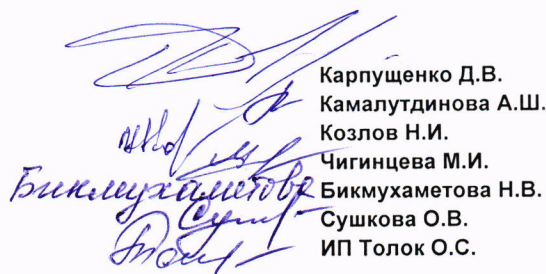 Карпущенко Д.В.
Камалутдинова А.Ш.
Козлов Н.И.
Чигинцева М.И.
Бикмухаметова Бикмухаметова Н.В.
Сушкова О.В.
ИП Толок О.С.